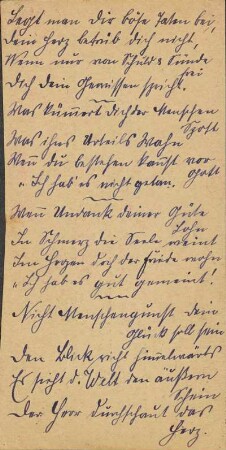 Legt man dir böse Taten bei,
Dein Herz betrüb dich nicht
Wenn nur von Schuld & Sünde frei
Dich dein Gewissen spricht.
Was kümmert dich der Menschen Spott
Was ihres Urteils Wahn
Wenn du bestehen kannst vor Gott
"Ich hab' es nicht getan.
Wenn Undank deiner Güte Lohn
In Schmerz die Seele weint
Im Herzen doch der Friede wohn
"Ich hab es gut gemeint!
Nicht Menschengunst dein Glück soll sein
Den Blick richt himmelwärts
Es sieht d. Welt den äußern Schein
Der Herr durchschaut das Herz.